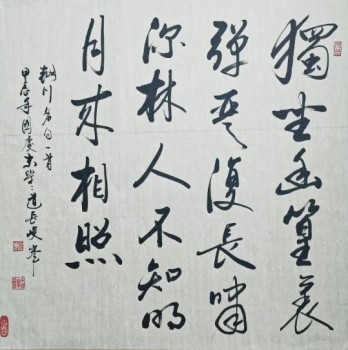 獨坐幽篁裏
弹琴復長嘯
深林人不知明
月来相照
輞川名句一首
甲辰年國慶